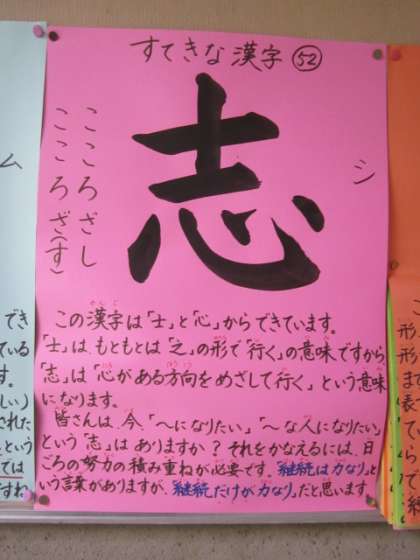 すてきな漢字 52
志
シ
こころざし
こころざ(す)
この漢字は「士」と「心」からできています。
「士」は、もともとは「之」の形で「行く」の意味ですから、
「志」は「心がある方向をめざして行く」という意味
になります。
皆さんは、今、「〜になりたい」「〜な人になりたい」
という「志」はありますか？それをかなえるには、日
ごろの努力の積み重ねが必要です。「継続は力なり」と
いう言葉がありますが、「継続だけが力なり」だと思います。
ム
でき
ている
す。
しい)
された
という
ては
すね